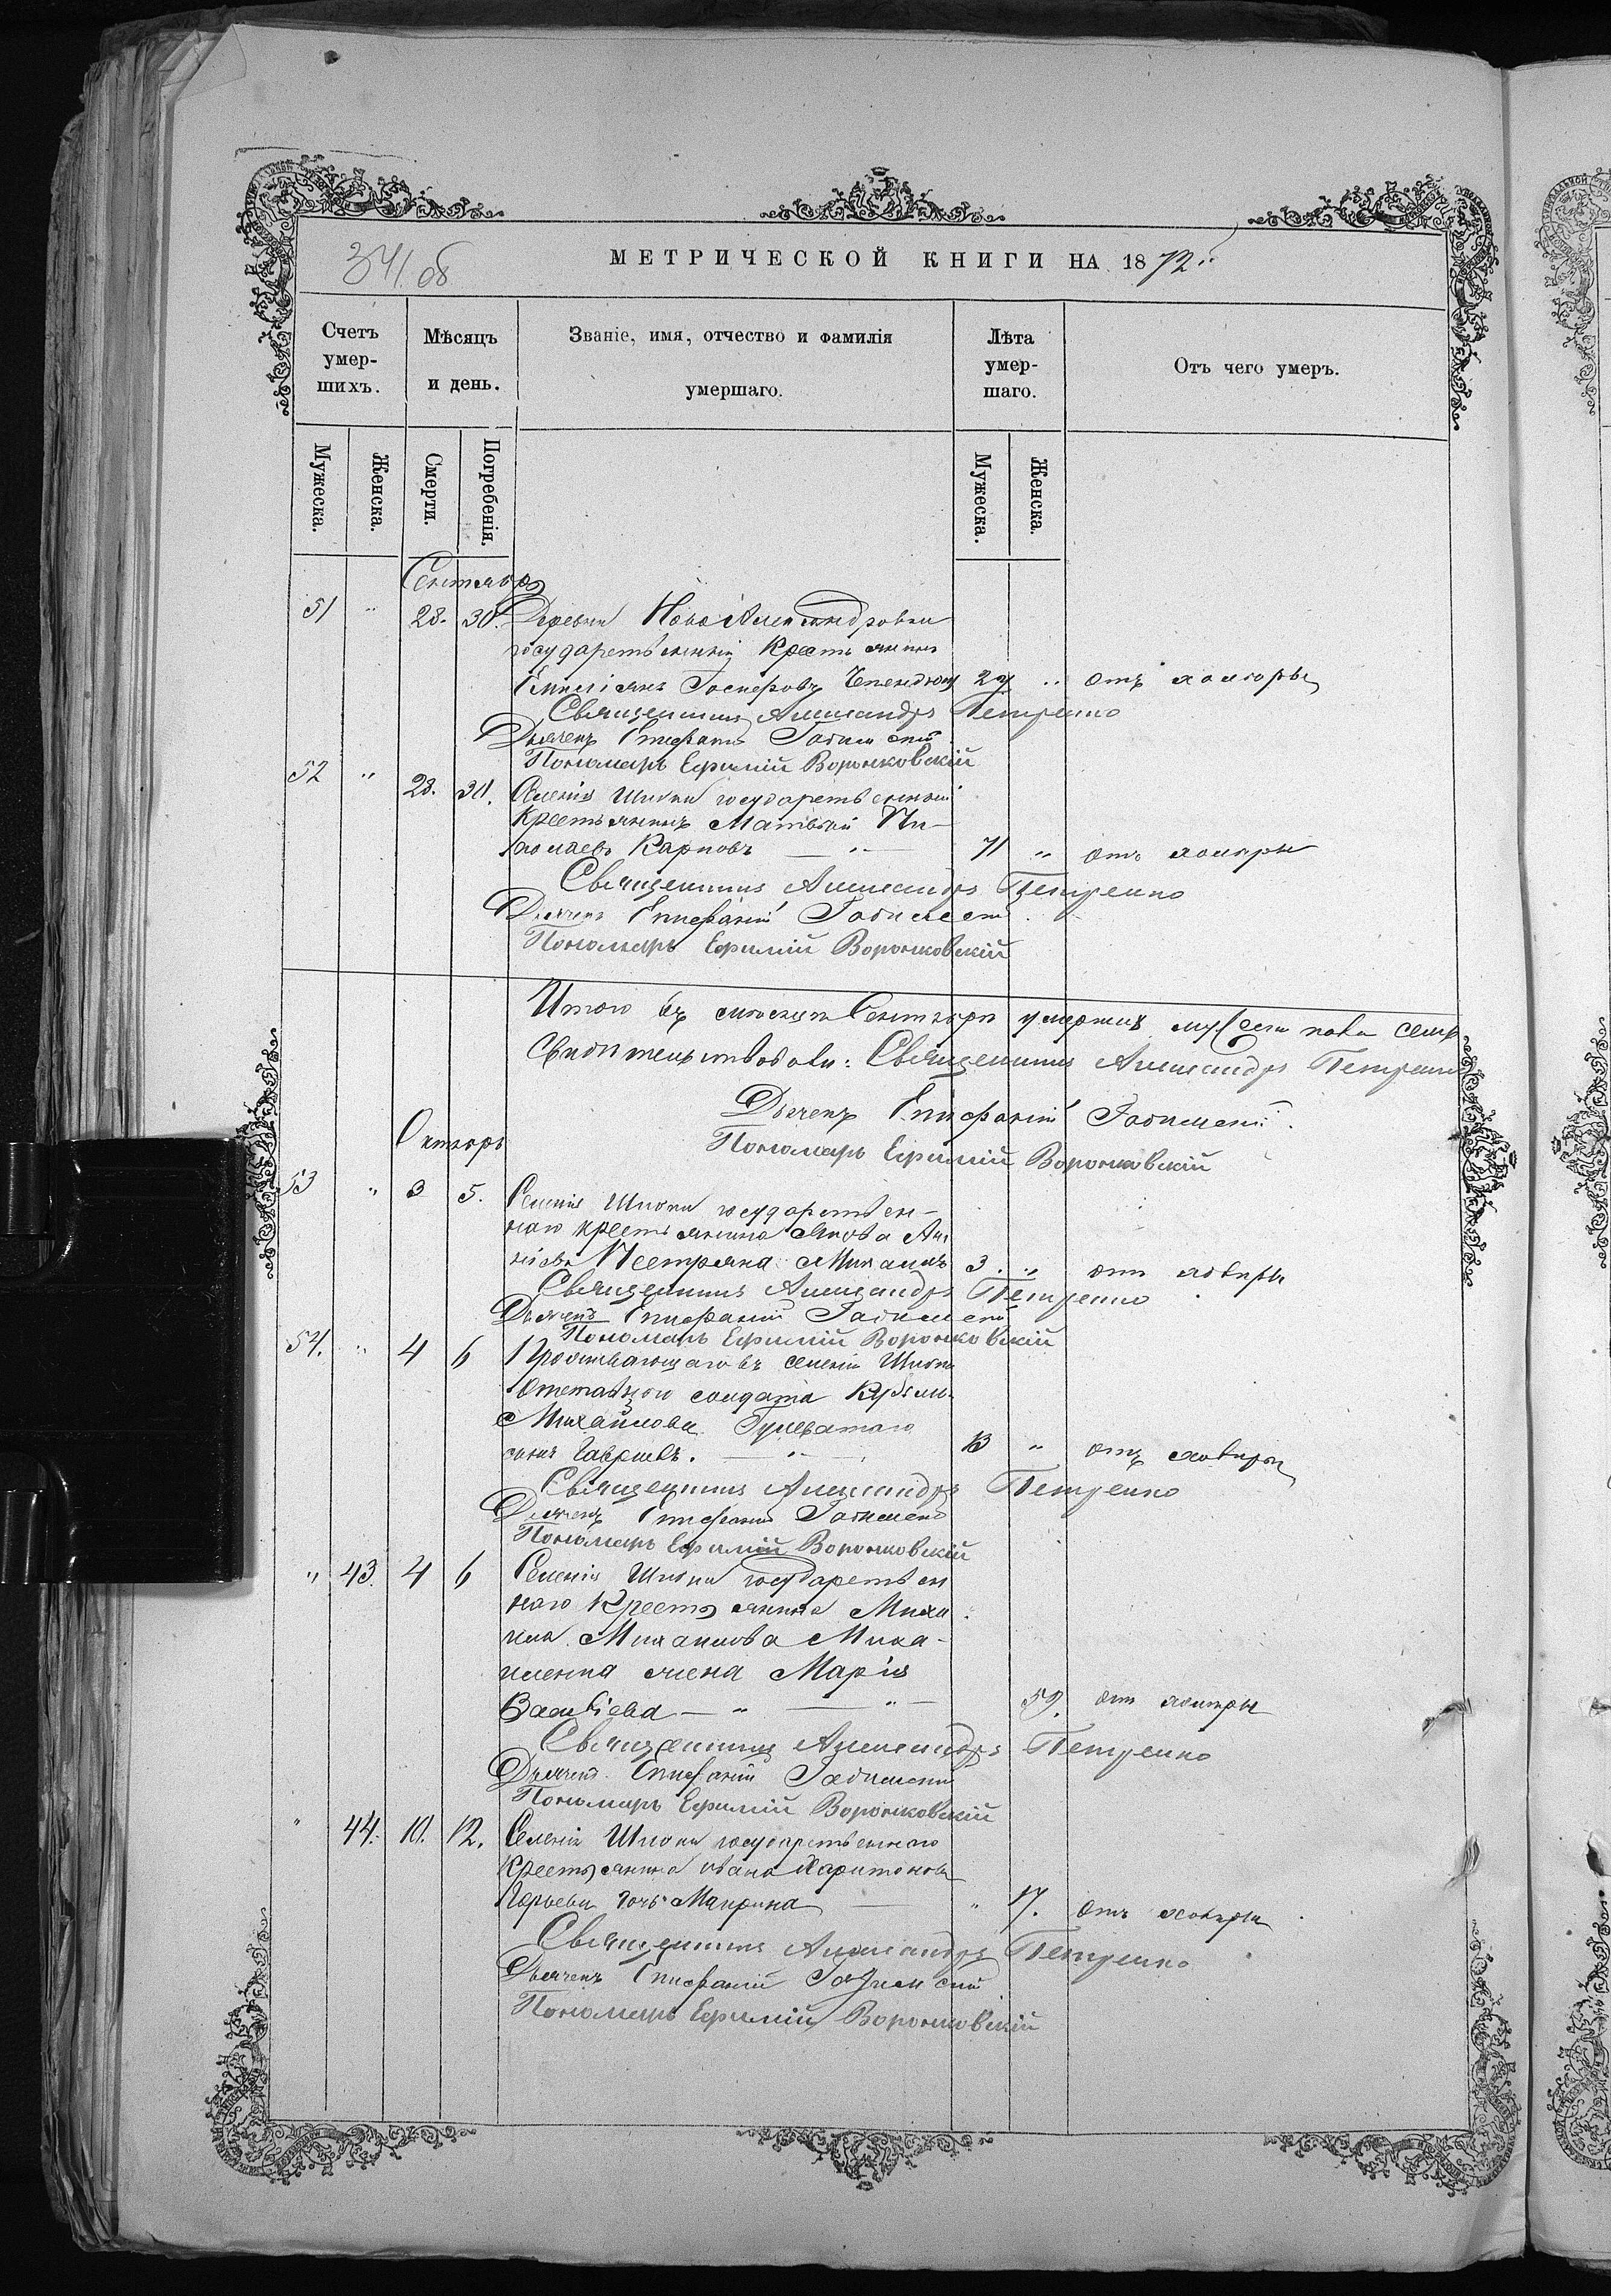 341 об
МЕТРИЧЕСКОЙ КНИГИ НА 1872
Счетъ умер-шихъ.
Мѣсяцъ и день.
Званіе, имя, отчество и фамилія умершаго.
Лѣта умер-шаго.
Отъ чего умеръ.
Мужеска. Женска. Смерти. Погребенія. Мужеска. Женска.
Сентябрь
51 " 28. 30. Деревни Ново Александровки
государственный Крестьянинъ
29 " отъ холеры
Священникъ Александръ Петренко
Дьячекъ Епифаній
Пономарь Ефимій Воронковскій
52 " 28. 30. Селенія государственный
Крестьянинъ Матвѣй Ни-
колаевъ Карповъ — " — 71 " отъ холеры
Священникъ Александръ Петренко
Дьячекъ Епифаній
Пономарь Ефимій Воронковскій
Итого въ мѣсяцѣ Сентябрѣ умершихъ мужеска пола семь
Свидѣтельствовали: Священникъ Александръ Петренко
Дьячекъ Епифаній
Пономарь Ефимій Воронковскій
Октябрь
53 " 3 5. Селенія государствен-
наго крестьянина Якова
Пестряка Михаилъ 3. " отъ холеры
Священникъ Александръ Петренко
Дьячекъ Епифаній
Пономарь Ефимій Воронковскій
54. " 4 6 Проживающаго въ селеніи
Отставного солдата Кузьмы
Михайлова
сынъ Гавріилъ. — " — 13 " отъ холеры
Священникъ Александръ Петренко
Дьячекъ Епифаній
Пономарь Ефимій Воронковскій
" 43. 4 6 Селенія государствен
наго Крестьянина Миха
ила Михаилова Миха-
иленка жена Марія
— " — " — 59. отъ холеры
Священникъ Александръ Петренко
Дьячекъ Епифаній
Пономарь Ефимій Воронковскій
" 44. 10. 12. Селенія государственнаго
Крестьянина Ивана Харитонова
дочь Макрина — " 17. отъ холеры
Священникъ Александръ Петренко
Дьячекъ Епифаній
Пономарь Ефимій Воронковскій